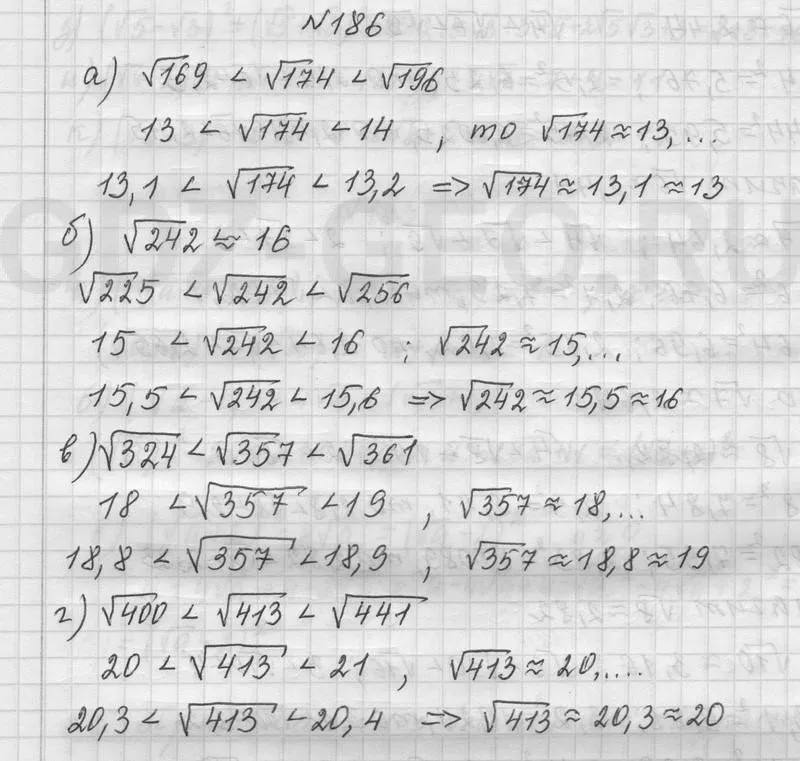 №186
а) √169 < √174 < √196
13 < √174 < 14 , то √174 ≈ 13,...
13,1 < √174 < 13,2 => √174 ≈ 13,1 ≈ 13
б) √242 ≈ 16
√225 < √242 < √256
15 < √242 < 16 ; √242 ≈ 15,...
15,5 < √242 < 15,6 => √242 ≈ 15,5 ≈ 16
в) √324 < √357 < √361
18 < √357 < 19 , √357 ≈ 18,...
18,8 < √357 < 18,9 , √357 ≈ 18,8 ≈ 19
г) √400 < √413 < √441
20 < √413 < 21 , √413 ≈ 20,....
20,3 < √413 < 20,4 => √413 ≈ 20,3 ≈ 20